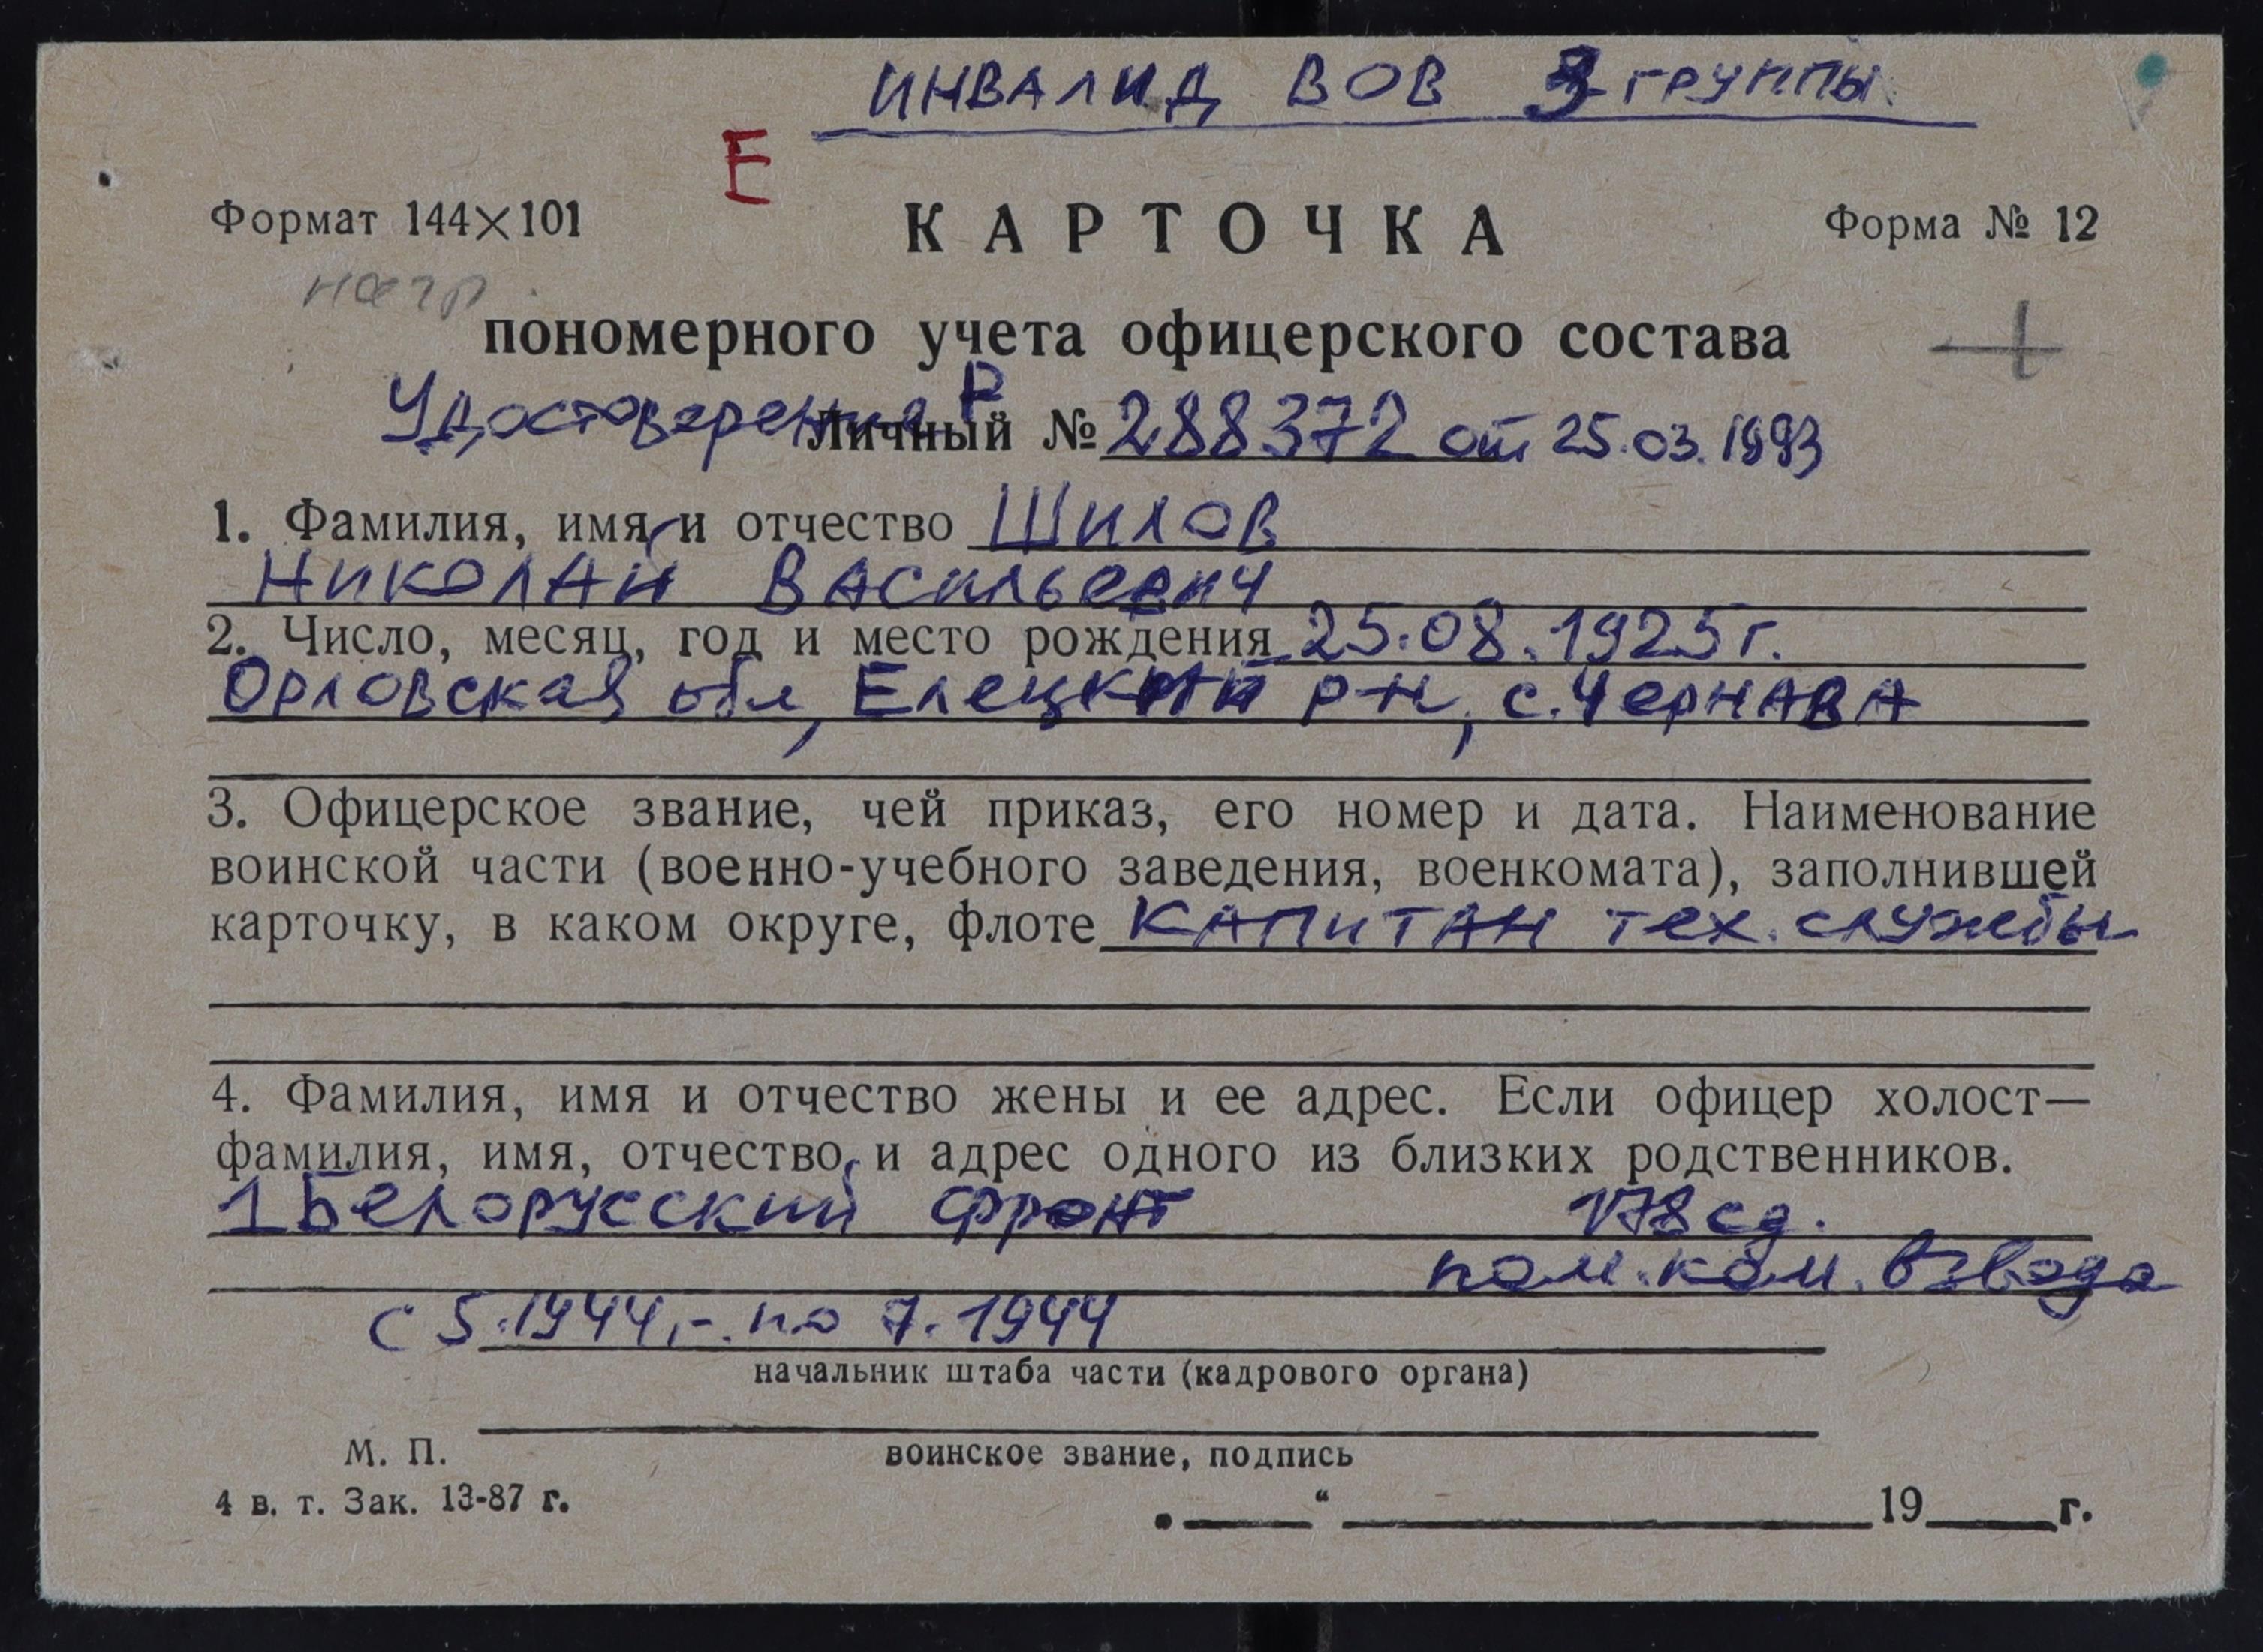 ИНВАЛИД ВОВ 3 ГРУППЫ
Е
Формат 144×101 КАРТОЧКА Форма № 12
нагр.
пономерного учета офицерского состава +
Удостоверение Р
Личный № 288372 от 25.03.1993
1. Фамилия, имя и отчество Шилов
Николай Васильевич
2. Число, месяц, год и место рождения 25.08.1925 г.
Орловская обл, Елецкий р-н, с. Чернава
3. Офицерское звание, чей приказ, его номер и дата. Наименование
воинской части (военно-учебного заведения, военкомата), заполнившей
карточку, в каком округе, флоте капитан тех. службы
4. Фамилия, имя и отчество жены и ее адрес. Если офицер холост—
фамилия, имя, отчество и адрес одного из близких родственников.
1 Белорусский фронт 178 сд.
пом. ком. взвода
с 5.1944,-. по 7.1944
начальник штаба части (кадрового органа)
М. П.
воинское звание, подпись
4 в. т. Зак. 13-87 г.
„ “ 19 г.